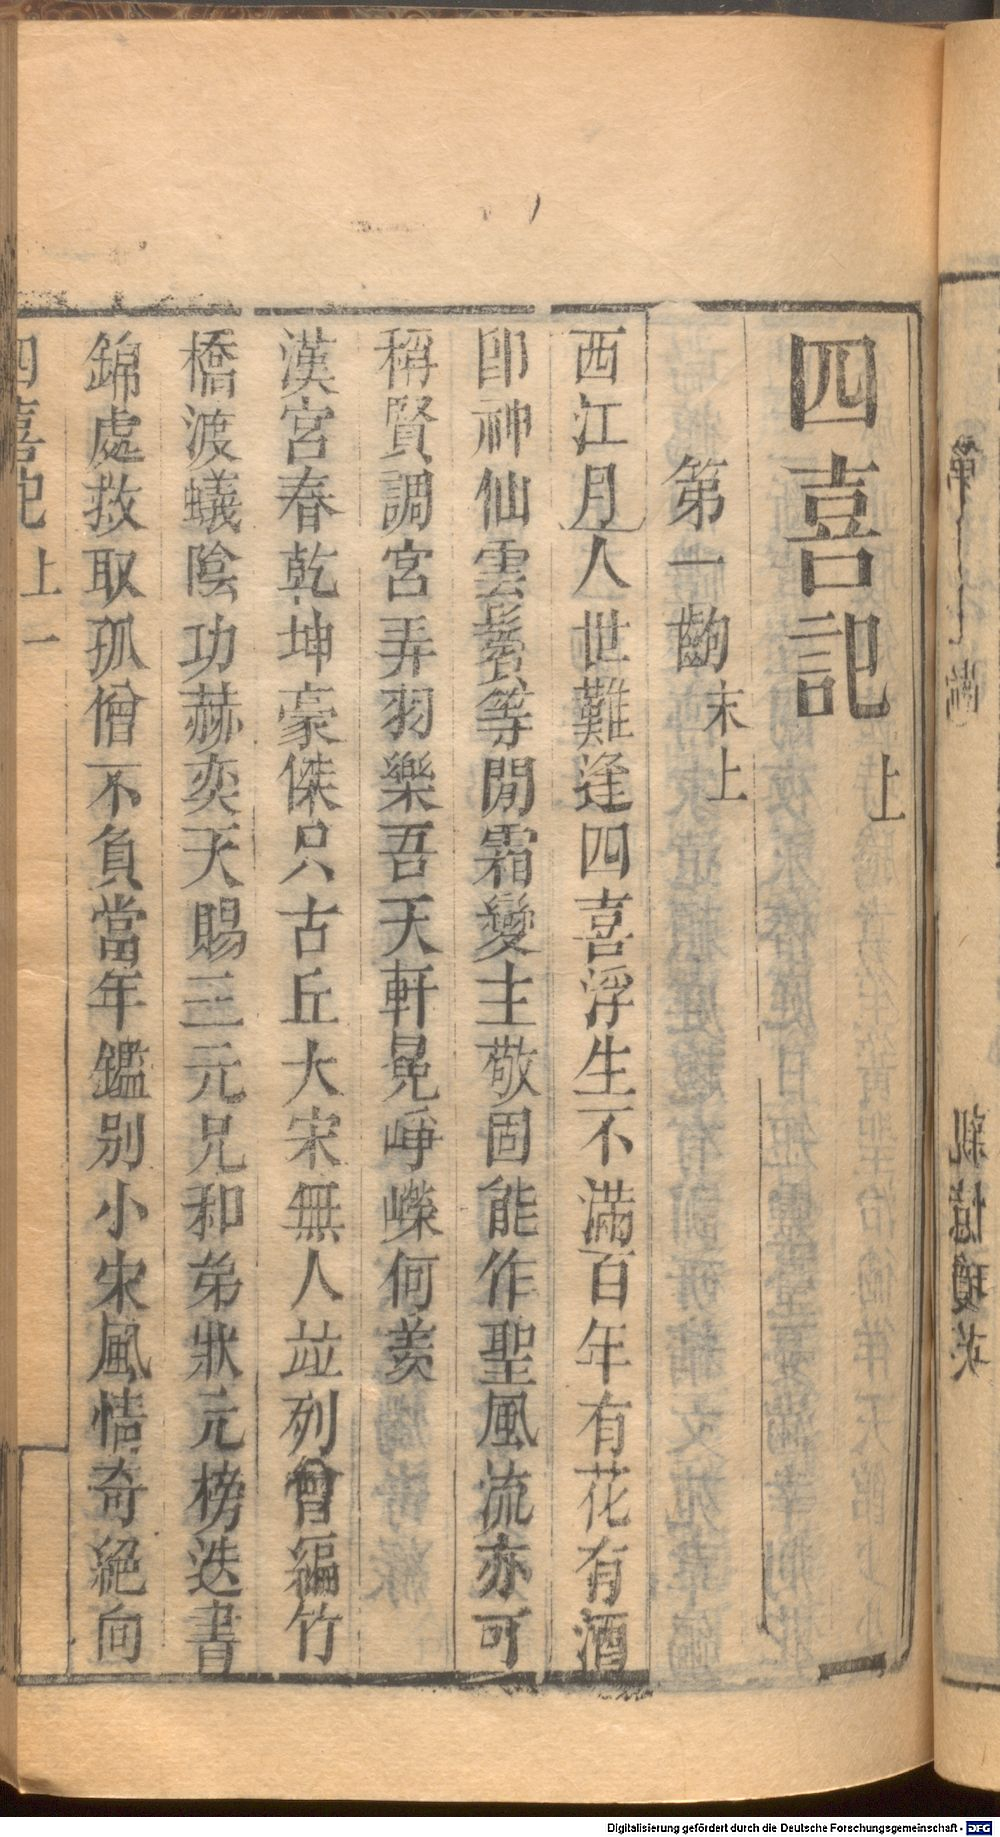 四喜記上
第一齣末上
西江月人世難逢四喜浮生不滿百年有花有酒
卽神仙雲鬢等閒霜變主敬固能作聖風流亦可
稱賢調宮弄羽樂吾天軒冕崢嶸何羨
漢宮春乾坤豪傑只古丘大宋無人竝列曾編竹
橋渡蟻陰功赫奕天賜三元兄和弟狀元榜迭書
錦處救取孤僧不負當年鑑別小宋風情奇絕向
四喜記 上 一
Digitalisierung gefördert durch die Deutsche Forschungsgemeinschaft - DFG